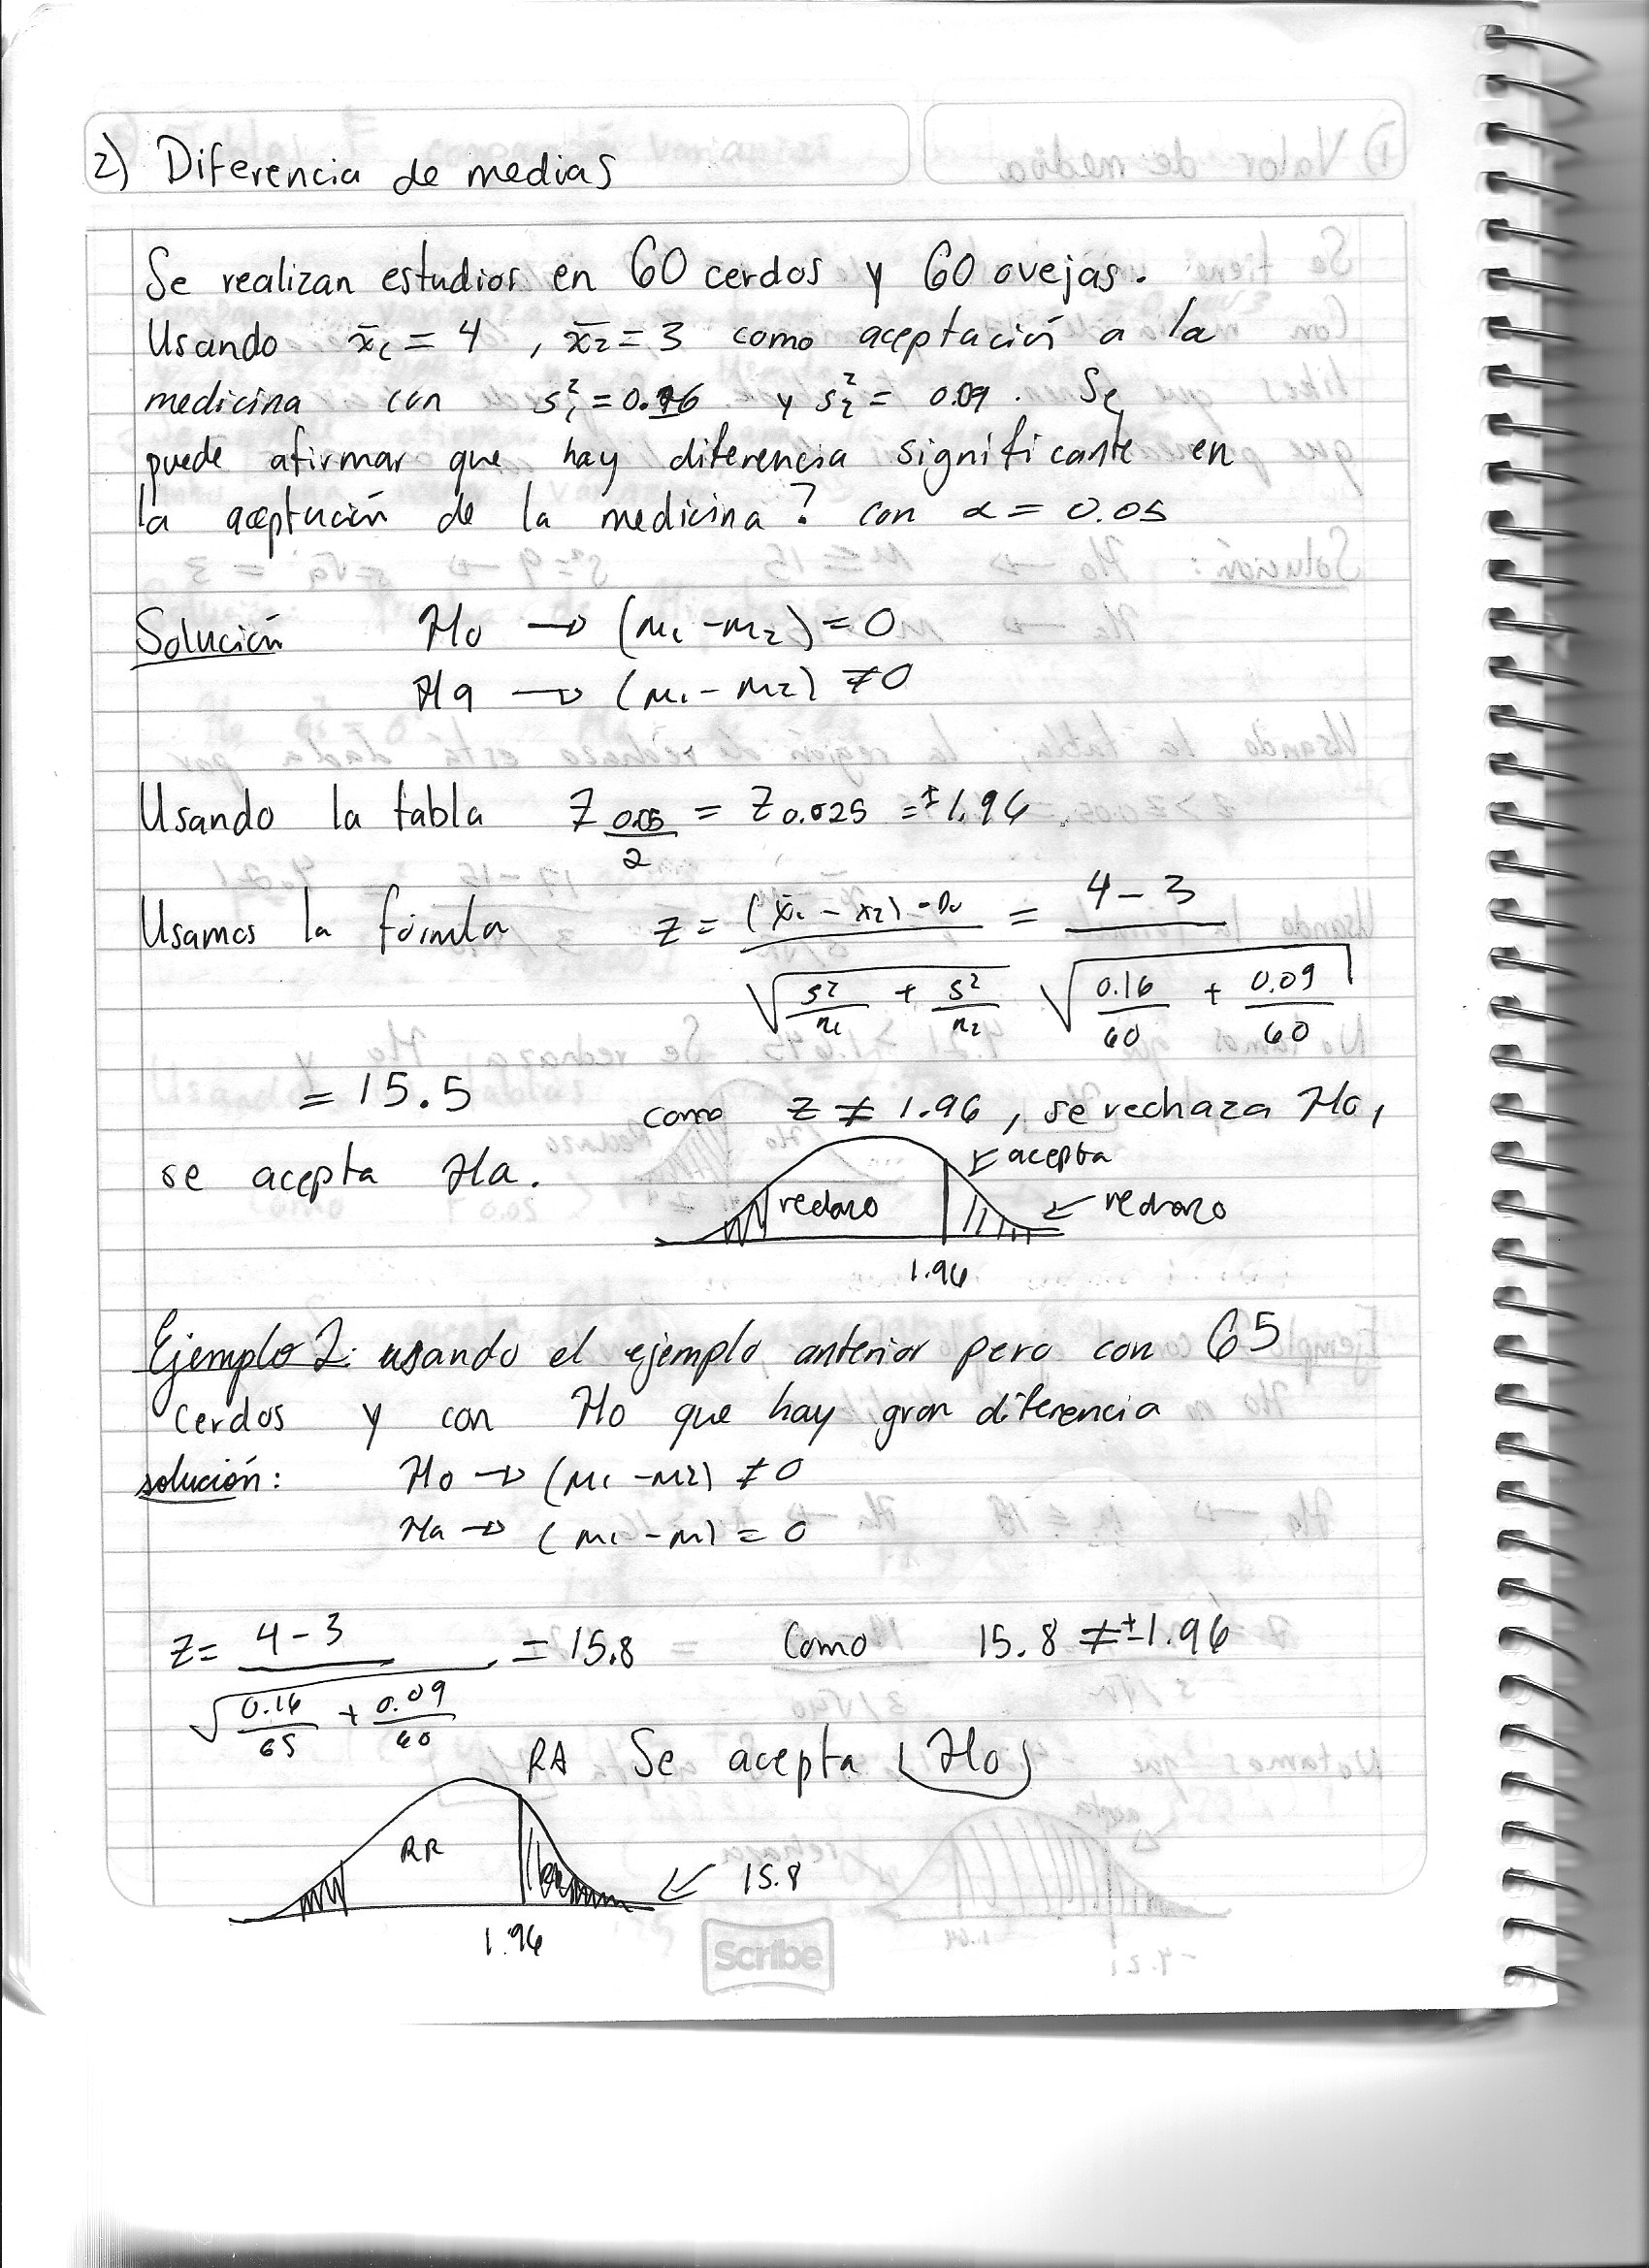 2) Diferencia de medias
Se realizan estudios en 60 cerdos y 60 ovejas.
Usando x̄₁ = 4 , x̄₂ = 3 como aceptación a la
medicina con s₁² = 0.16 y s₂² = 0.09 . Se
puede afirmar que hay diferencia significante en
la aceptación de la medicina? con α = 0.05
Solución H₀ → (μ₁ - μ₂) = 0
Ha → (μ₁ - μ₂) ≠ 0
Usando la tabla Z 0.05/2 = Z 0.025 = ±1.96
Usamos la fórmula z = (x̄₁ - x̄₂) - D₀ / √(s²/n₁ + s²/n₂) = 4 - 3 / √(0.16/60 + 0.09/60)
= 15.5 como z ≠ 1.96 , se rechaza H₀,
se acepta Ha.
acepta
rechazo
rechazo
1.96
Ejemplo 2: usando el ejemplo anterior pero con 65
cerdos y con H₀ que hay gran diferencia
solución: H₀ → (μ₁ - μ₂) ≠ 0
Ha → (μ₁ - μ) = 0
z = 4 - 3 / √(0.16/65 + 0.09/60) = 15.8 Como 15.8 ≠ ±1.96
RA Se acepta (H₀)
RR
15.8
1.96
Scribe